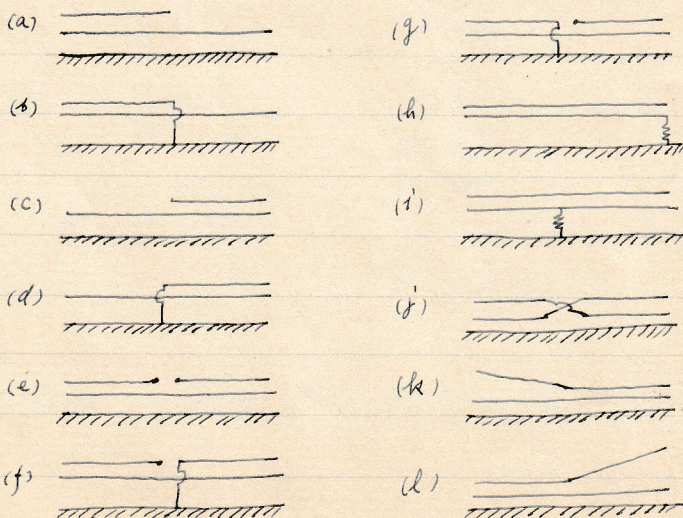 (a)
(b)
(c)
(d)
(e)
(f)
(g)
(h)
(i)
(j)
(k)
(l)